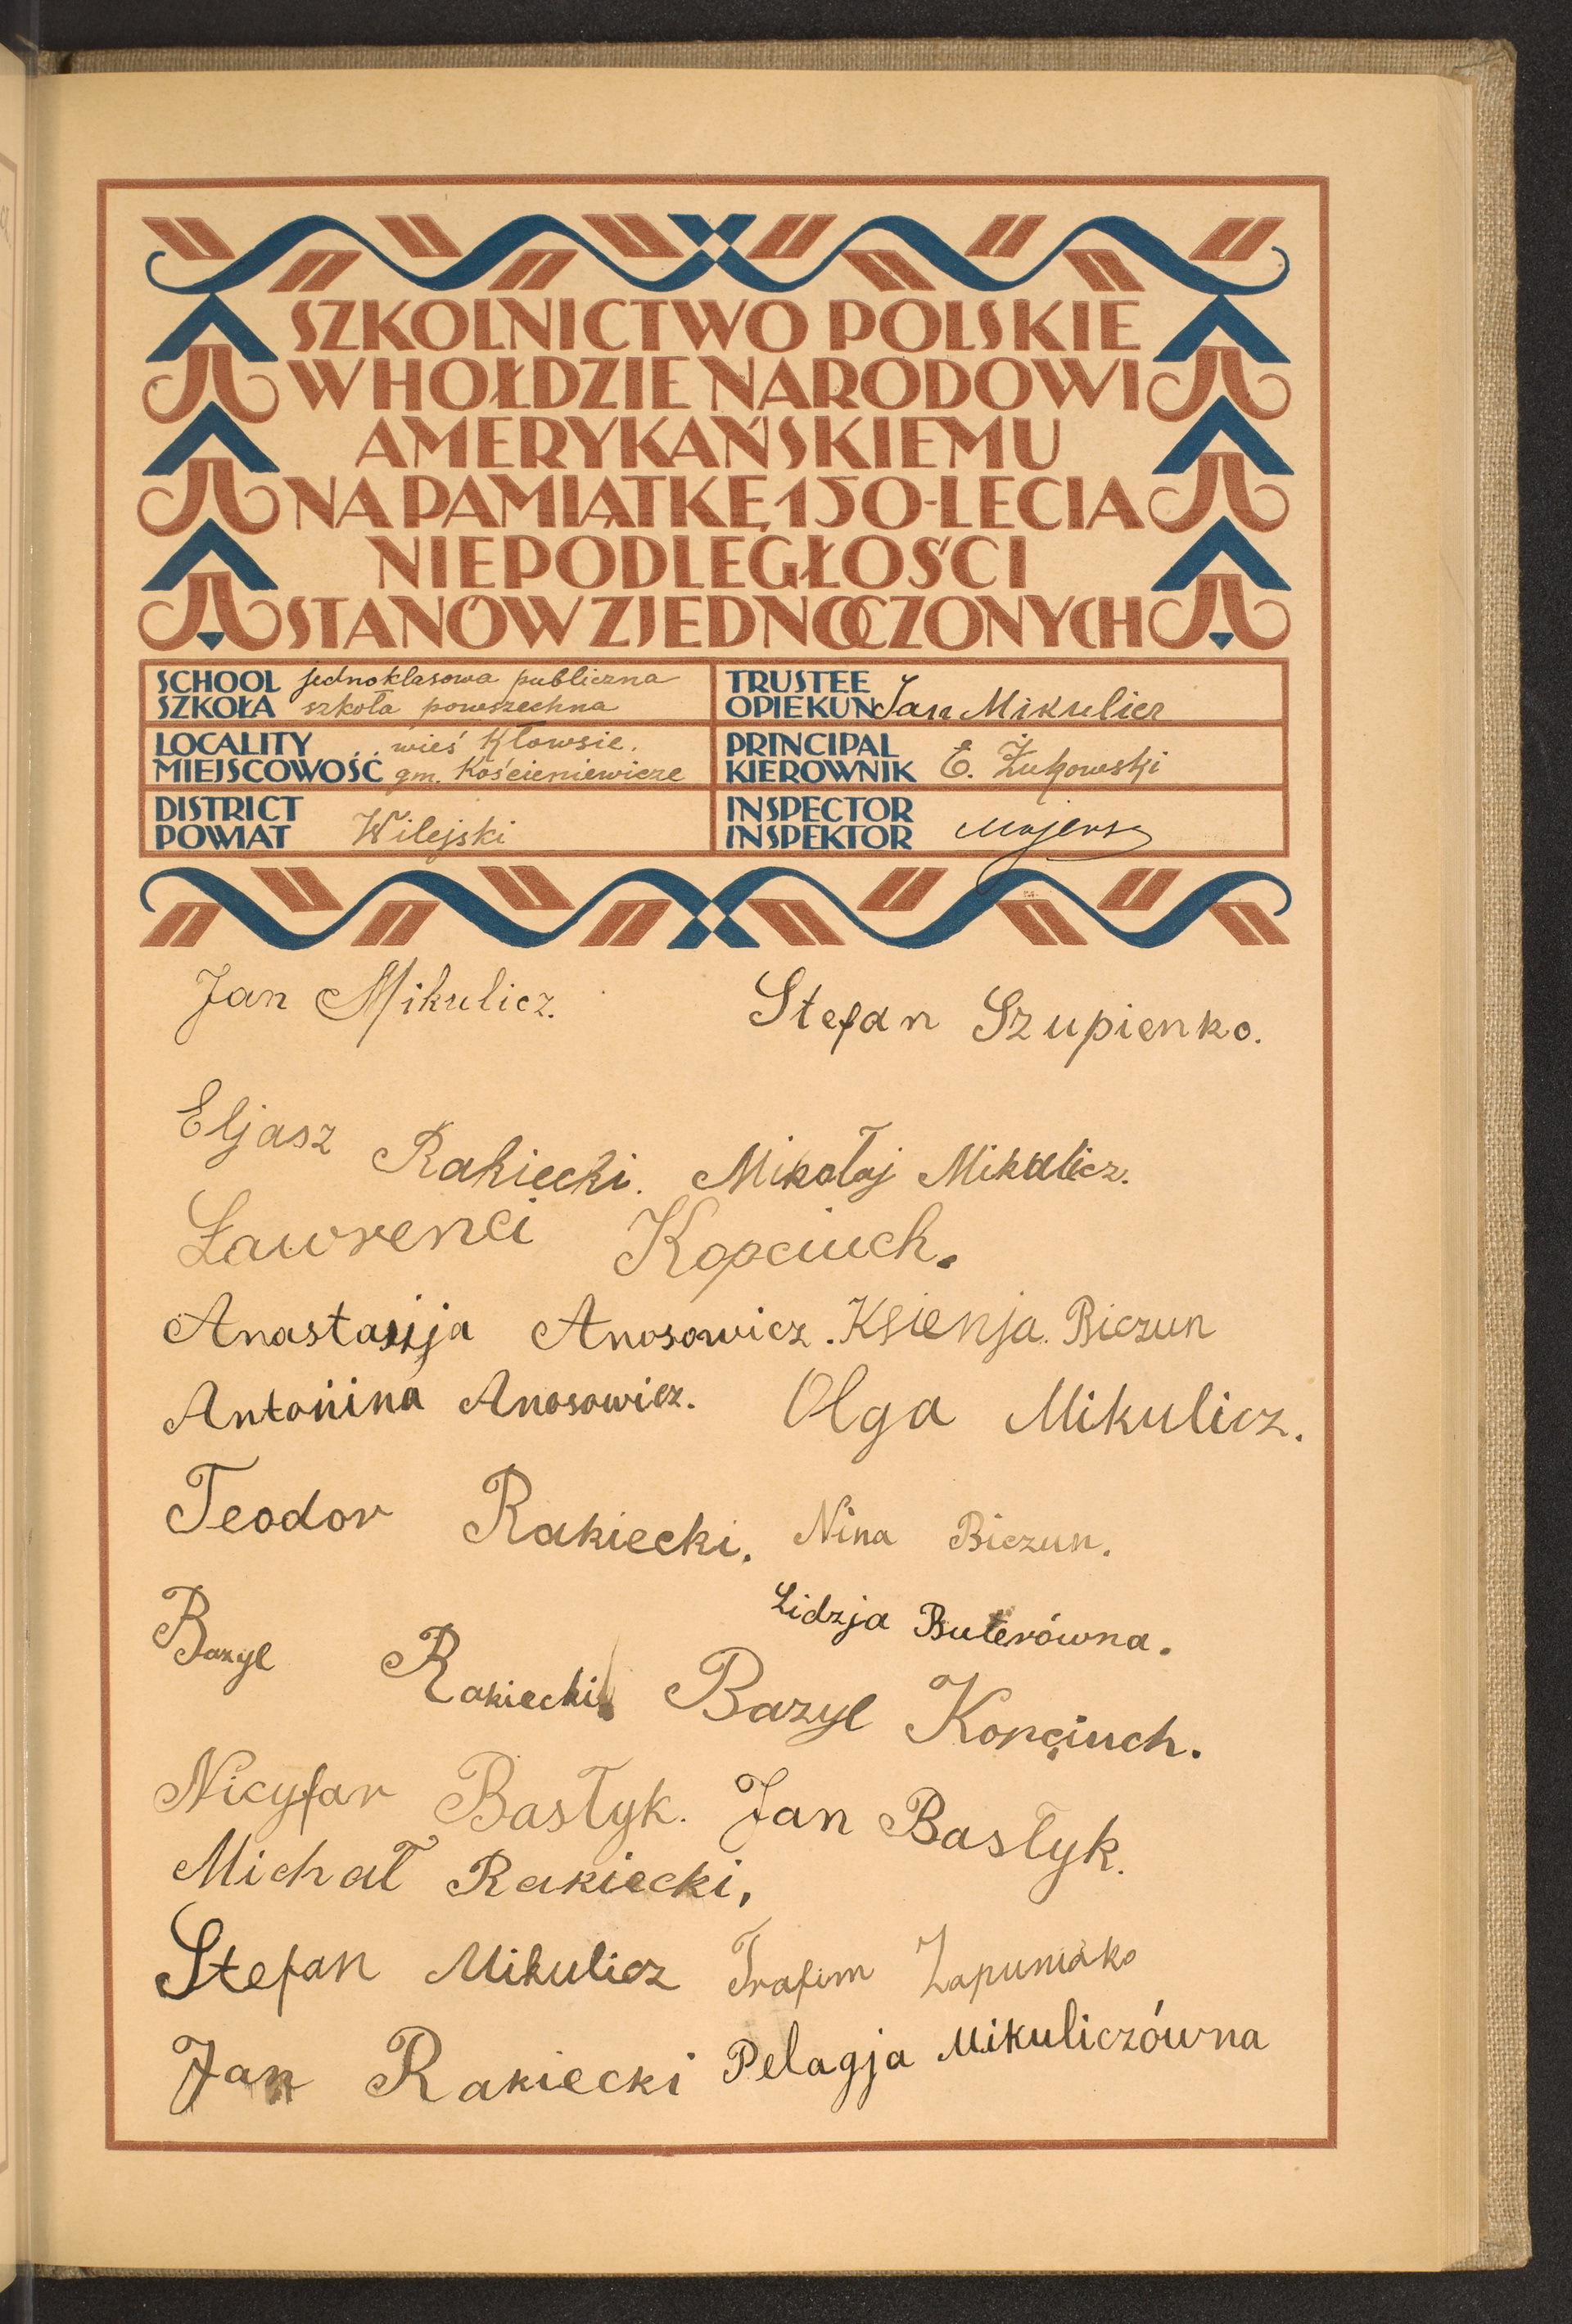 SZKOLNICTWO POLSKIE
W HOŁDZIE NARODOWI
AMERYKAŃSKIEMU
NA PAMIĄTKĘ 150-LECIA
NIEPODLEGŁOŚCI
STANÓW ZJEDNOCZONYCH
SCHOOL jednoklasowa publiczna
SZKOŁA szkoła powszechna
TRUSTEE
OPIEKUN Jan Mikulicz
LOCALITY wieś Kłowsie.
MIEJSCOWOŚĆ gm. Kościeniewicze
PRINCIPAL
KIEROWNIK E. Żukowski
DISTRICT
POWIAT Wilejski
INSPECTOR
INSPEKTOR
Jan Mikulicz.
Stefan Szupienko.
Eljasz Rakiecki. Mikołaj Mikulicz.
Ławrenci Kopciuch.
Anastasija Anosowicz. Ksienja. Biczun
Antonina Anosowicz. Olga Mikulicz.
Teodor Rakiecki. Nina Biczun.
Lidzja Buterówna.
Bazyl Rakiecki. Bazyl Kopciuch.
Nicyfar Bastyk. Jan Bastyk.
Michał Rakiecki,
Stefan Mikulicz Trafim
Jan Rakiecki Pelagja Mikuliczówna